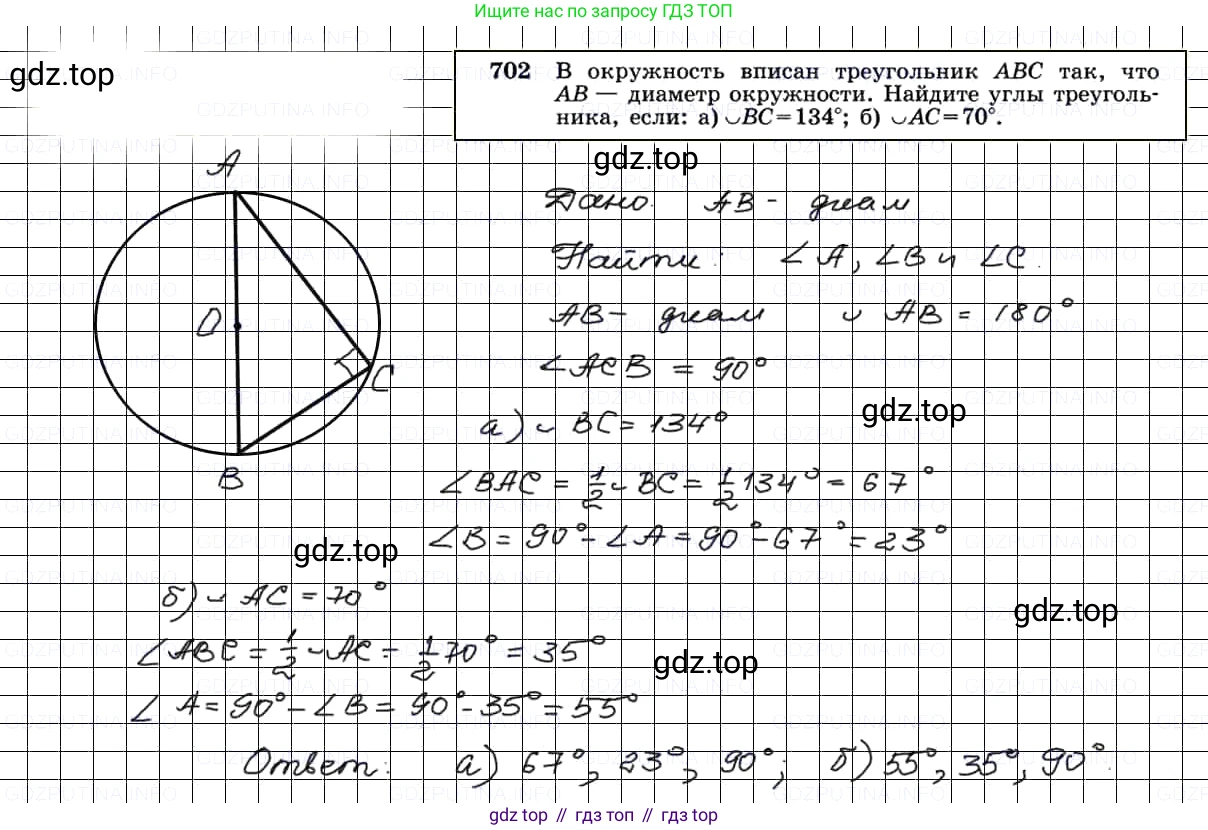 Ищите нас по запросу ГДЗ ТОП
gdz.top
702 В окружность вписан треугольник ABC так, что
AB — диаметр окружности. Найдите углы треуголь-
ника, если: а) ◡BC=134°; б) ◡AC=70°.
gdz.top
A
Дано: AB - диам
Найти: ∠A, ∠B и ∠C.
O
AB - диам ◡AB = 180°
∠ACB = 90°
C
gdz.top
а) ◡BC = 134°
B
∠BAC = 1/2 ◡BC = 1/2 134° = 67°
∠B = 90° - ∠A = 90° - 67° = 23°
gdz.top
б) ◡AC = 70°
gdz.top
∠ABC = 1/2 ◡AC = 1/2 70° = 35°
gdz.top
∠A = 90° - ∠B = 90° - 35° = 55°
Ответ: а) 67°, 23°, 90°; б) 55°, 35°, 90°.
gdz top // гдз топ // gdz top